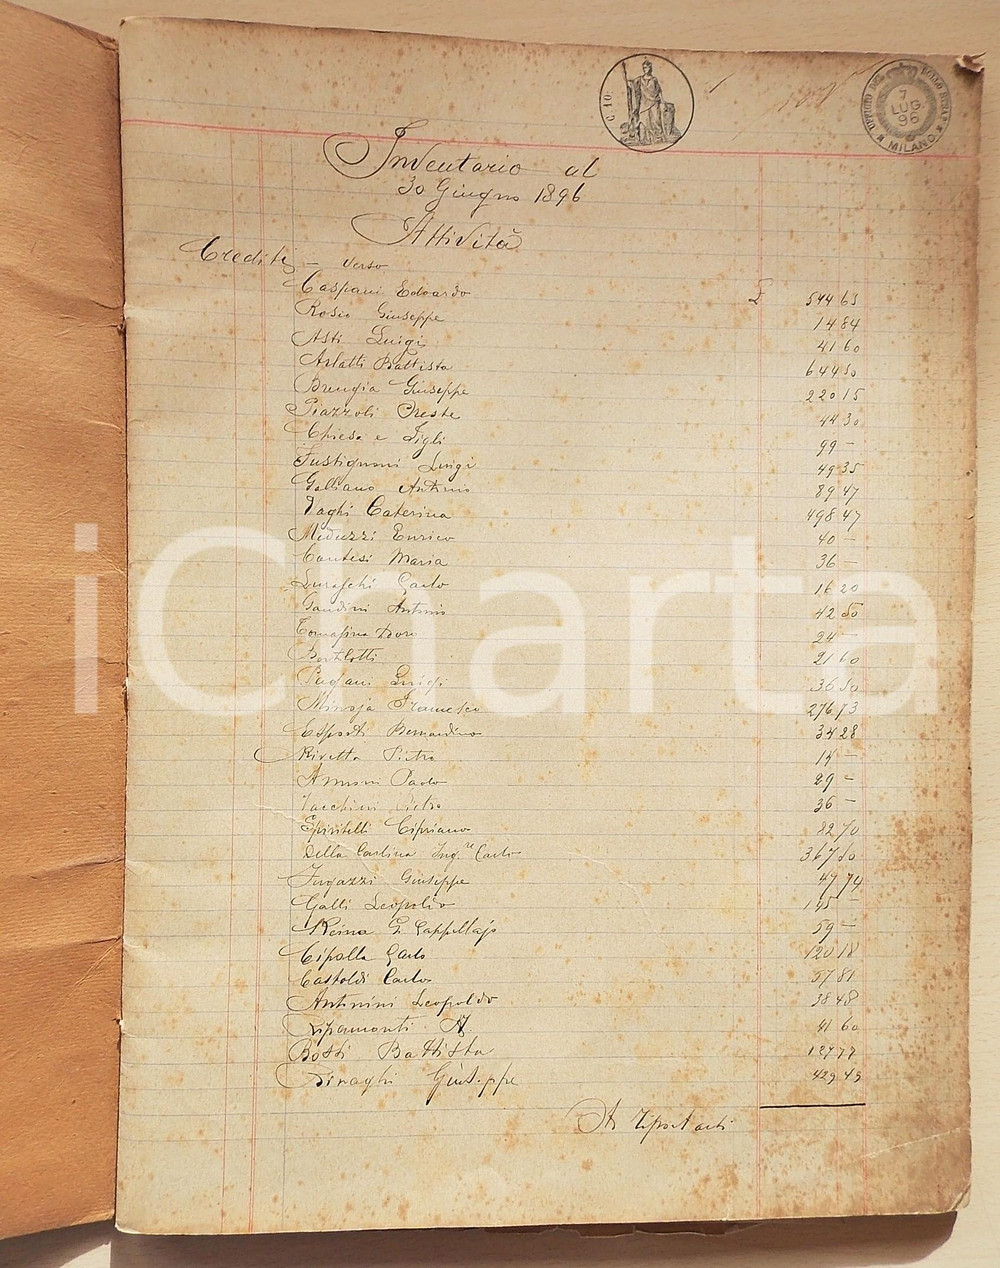 C. 10.
UFFICIO DEL BOLLO STRAO
7
LUG.
96
MILANO
Inventario al
30 Giugno 1896
Attività
Crediti - verso
Caspani Edoardo £ 544 63
Rosio Giuseppe 14 84
Asti Luigi 41 60
Arlatti Battista 644 50
Brengia Giuseppe 220 15
Piazzoli Oreste 44 30
Chiesa e Figli 99 -
Fustignoni Luigi 49 35
Galbano Antonio 89 47
Vaghi Caterina 498 47
Meduzzi Enrico 40 -
Contesi Maria 36 -
Luraschi Carlo 16 20
Gandini Antonio 42 50
Tomasina Doro 24 -
Bortolotti 21 60
Pagani Luigi 36 50
Minoja Francesco 276 73
Esposti Bernardino 34 28
Rivetta Pietro 15 -
Annoni Paolo 29 -
Vacchini Pietro 36 -
Spiritelli Cipriano 82 70
Della Carlina Ing.re Carlo 367 50
Fugazzi Giuseppe 47 74
Galli Leopoldo 145 -
Reina G. Cappellajo 59 -
Cipolla Carlo 120 18
Castoldi Carlo 57 81
Antonini Leopoldo 38 48
Ripamonti 41 60
Bossi Battista 127 77
Sinaghi Giuseppe 429 49
A riportarsi
iCharta